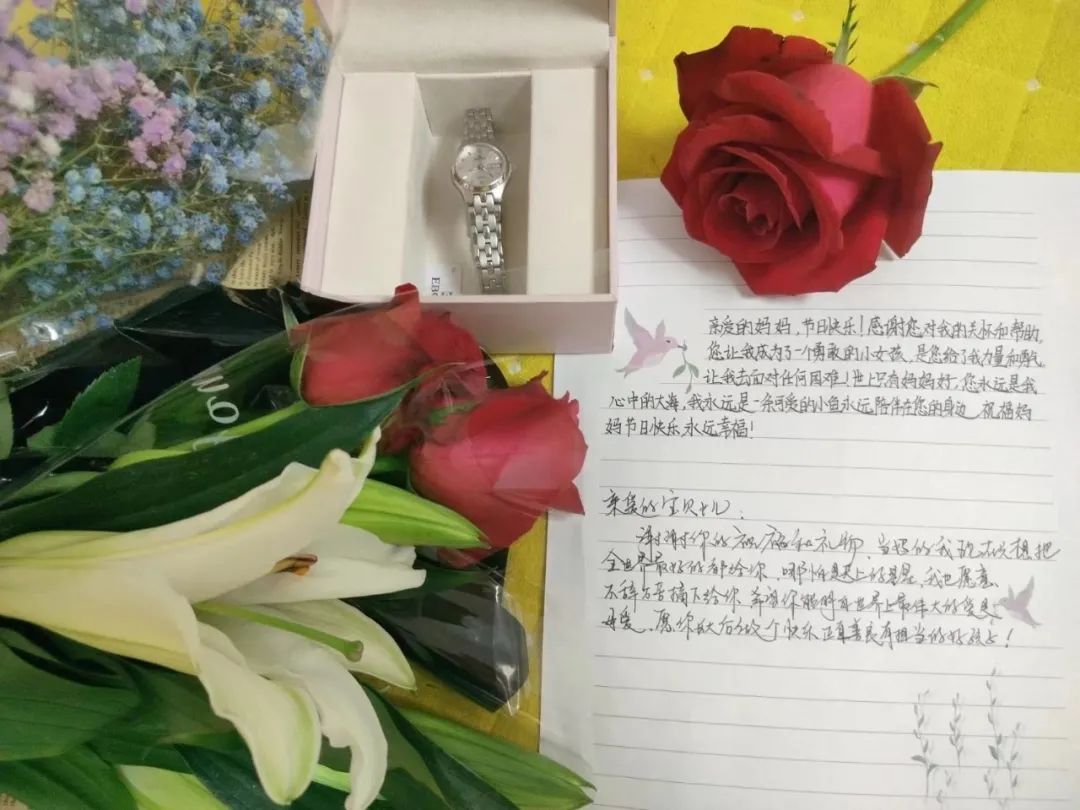 亲爱的妈妈,节日快乐!感谢您对我的关怀和帮助,
您让我成为了一个勇敢的小女孩,是您给了我力量和勇气,
让我去面对任何困难!世上只有妈妈好,您永远是我
心中的大海,我永远是一条可爱的小鱼永远陪伴在您的身边,祝福妈
妈节日快乐,永远幸福!
亲爱的宝贝女儿:
谢谢你的祝福和礼物,当妈的我就想把
全世界最好的都给你,哪怕是天上的星星,我也愿意
不辞万苦摘下给你,等你能明白世界上最伟大的爱是
母爱,愿你做个快乐正直善良有担当的好孩子!